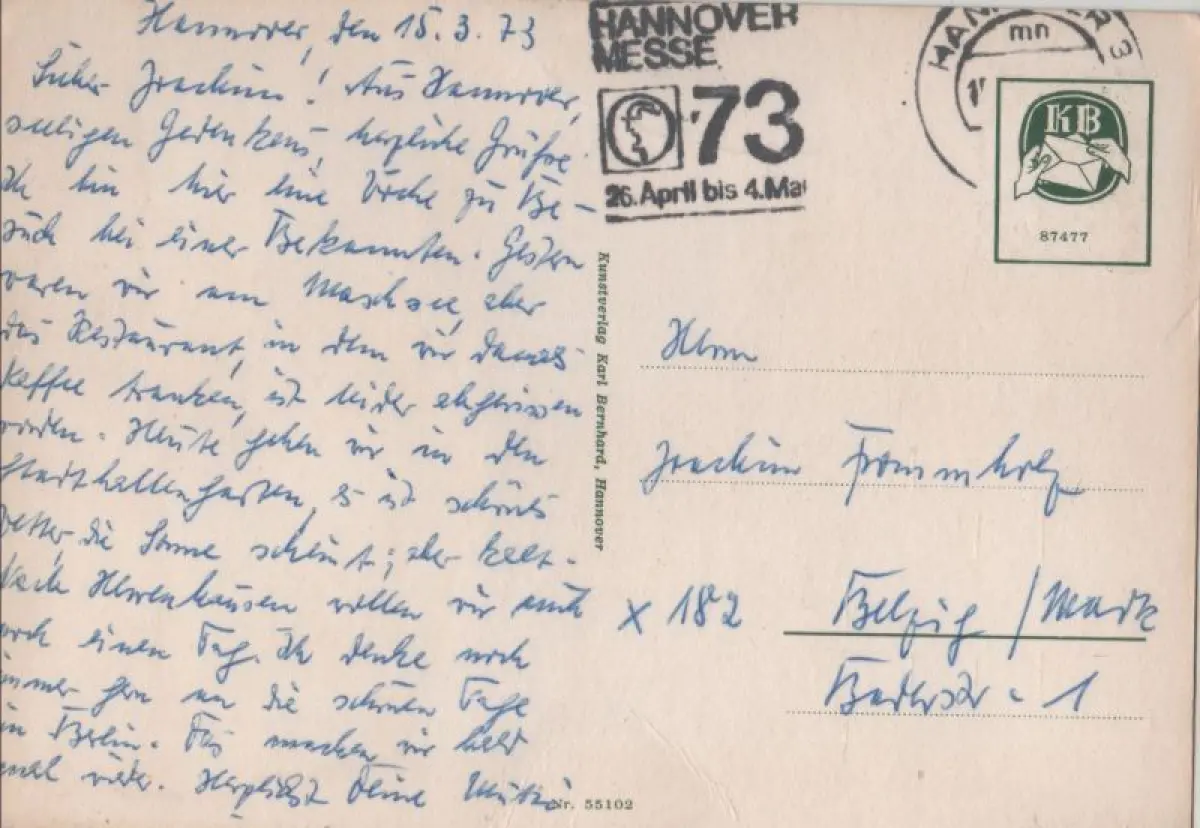 Hannover, den 15.3.73
Lieber Joachim! Aus Hannover,
seeligen Gedenkens, herzliche Grüße.
Ich bin hier eine Woche zu Be-
such bei einer Bekannten. Gestern
waren wir am Maschsee, aber
das Restaurant, in dem wir damals
Kaffee tranken, ist leider abgerissen
worden. Heute gehen wir in den
Stadthallengarten, es ist schönes
Wetter, die Sonne scheint, aber kalt.
Nach Herrenhausen wollen wir auch
noch einen Tag. Ich denke noch
immer gern an die schönen Tage
in Berlin. Das machen wir bald
mal wieder. Herzlichst Deine Mutti
HANNOVER
MESSE
'73
26. April bis 4. Mai
HANNOVER 3
mn
KB
87477
Kunstverlag Karl Bernhard, Hannover
Herrn
Joachim Frommholz
x 182 Belzig / Mark
Baderstr. 1
Nr. 55102